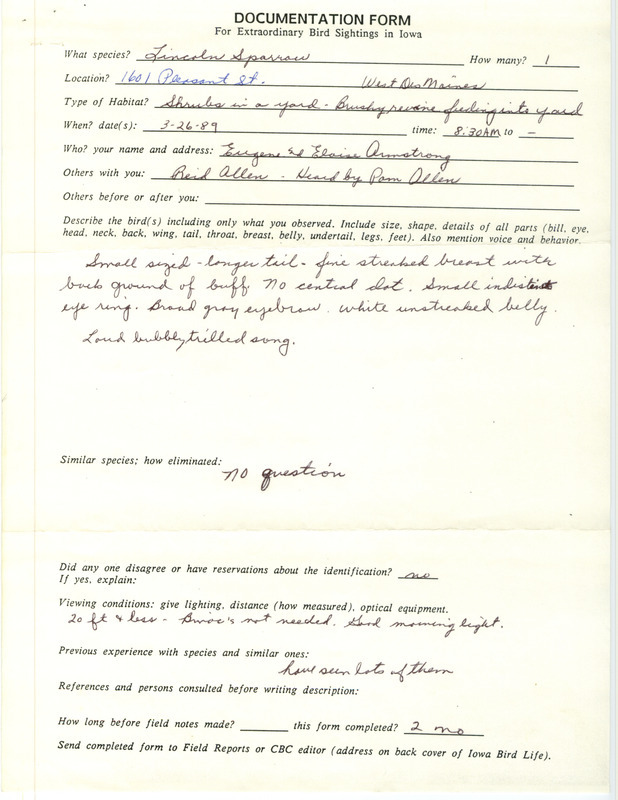 DOCUMENTATION FORM
For Extraordinary Bird Sightings in Iowa
What species? Lincoln Sparrow How many? 1
Location? 1601 Pleasant St. West Des Moines
Type of Habitat? Shrubs in a yard - Brushy revine feeding into yard
When? date(s): 3-26-89 time: 8:30AM to —
Who? your name and address: Eugene Ed Eloise Armstrong
Others with you: Reid Allen - Heard by Pam Allen
Others before or after you:
Describe the bird(s) including only what you observed. Include size, shape, details of all parts (bill, eye,
head, neck, back, wing, tail, throat, breast, belly, undertail, legs, feet). Also mention voice and behavior.
Small sized - longer tail - fine streaked breast with
back ground of buff. No central dot. Small indistinct
eye ring. Broad gray eyebrow. White unstreaked belly.
Loud bubbly, trilled song.
Similar species; how eliminated:
no question
Did any one disagree or have reservations about the identification? no
If yes, explain:
Viewing conditions: give lighting, distance (how measured), optical equipment.
20 ft & less - Binoc's not needed. Good morning light.
Previous experience with species and similar ones:
have seen lots of them
References and persons consulted before writing description:
How long before field notes made? this form completed? 2 mo
Send completed form to Field Reports or CBC editor (address on back cover of Iowa Bird Life).